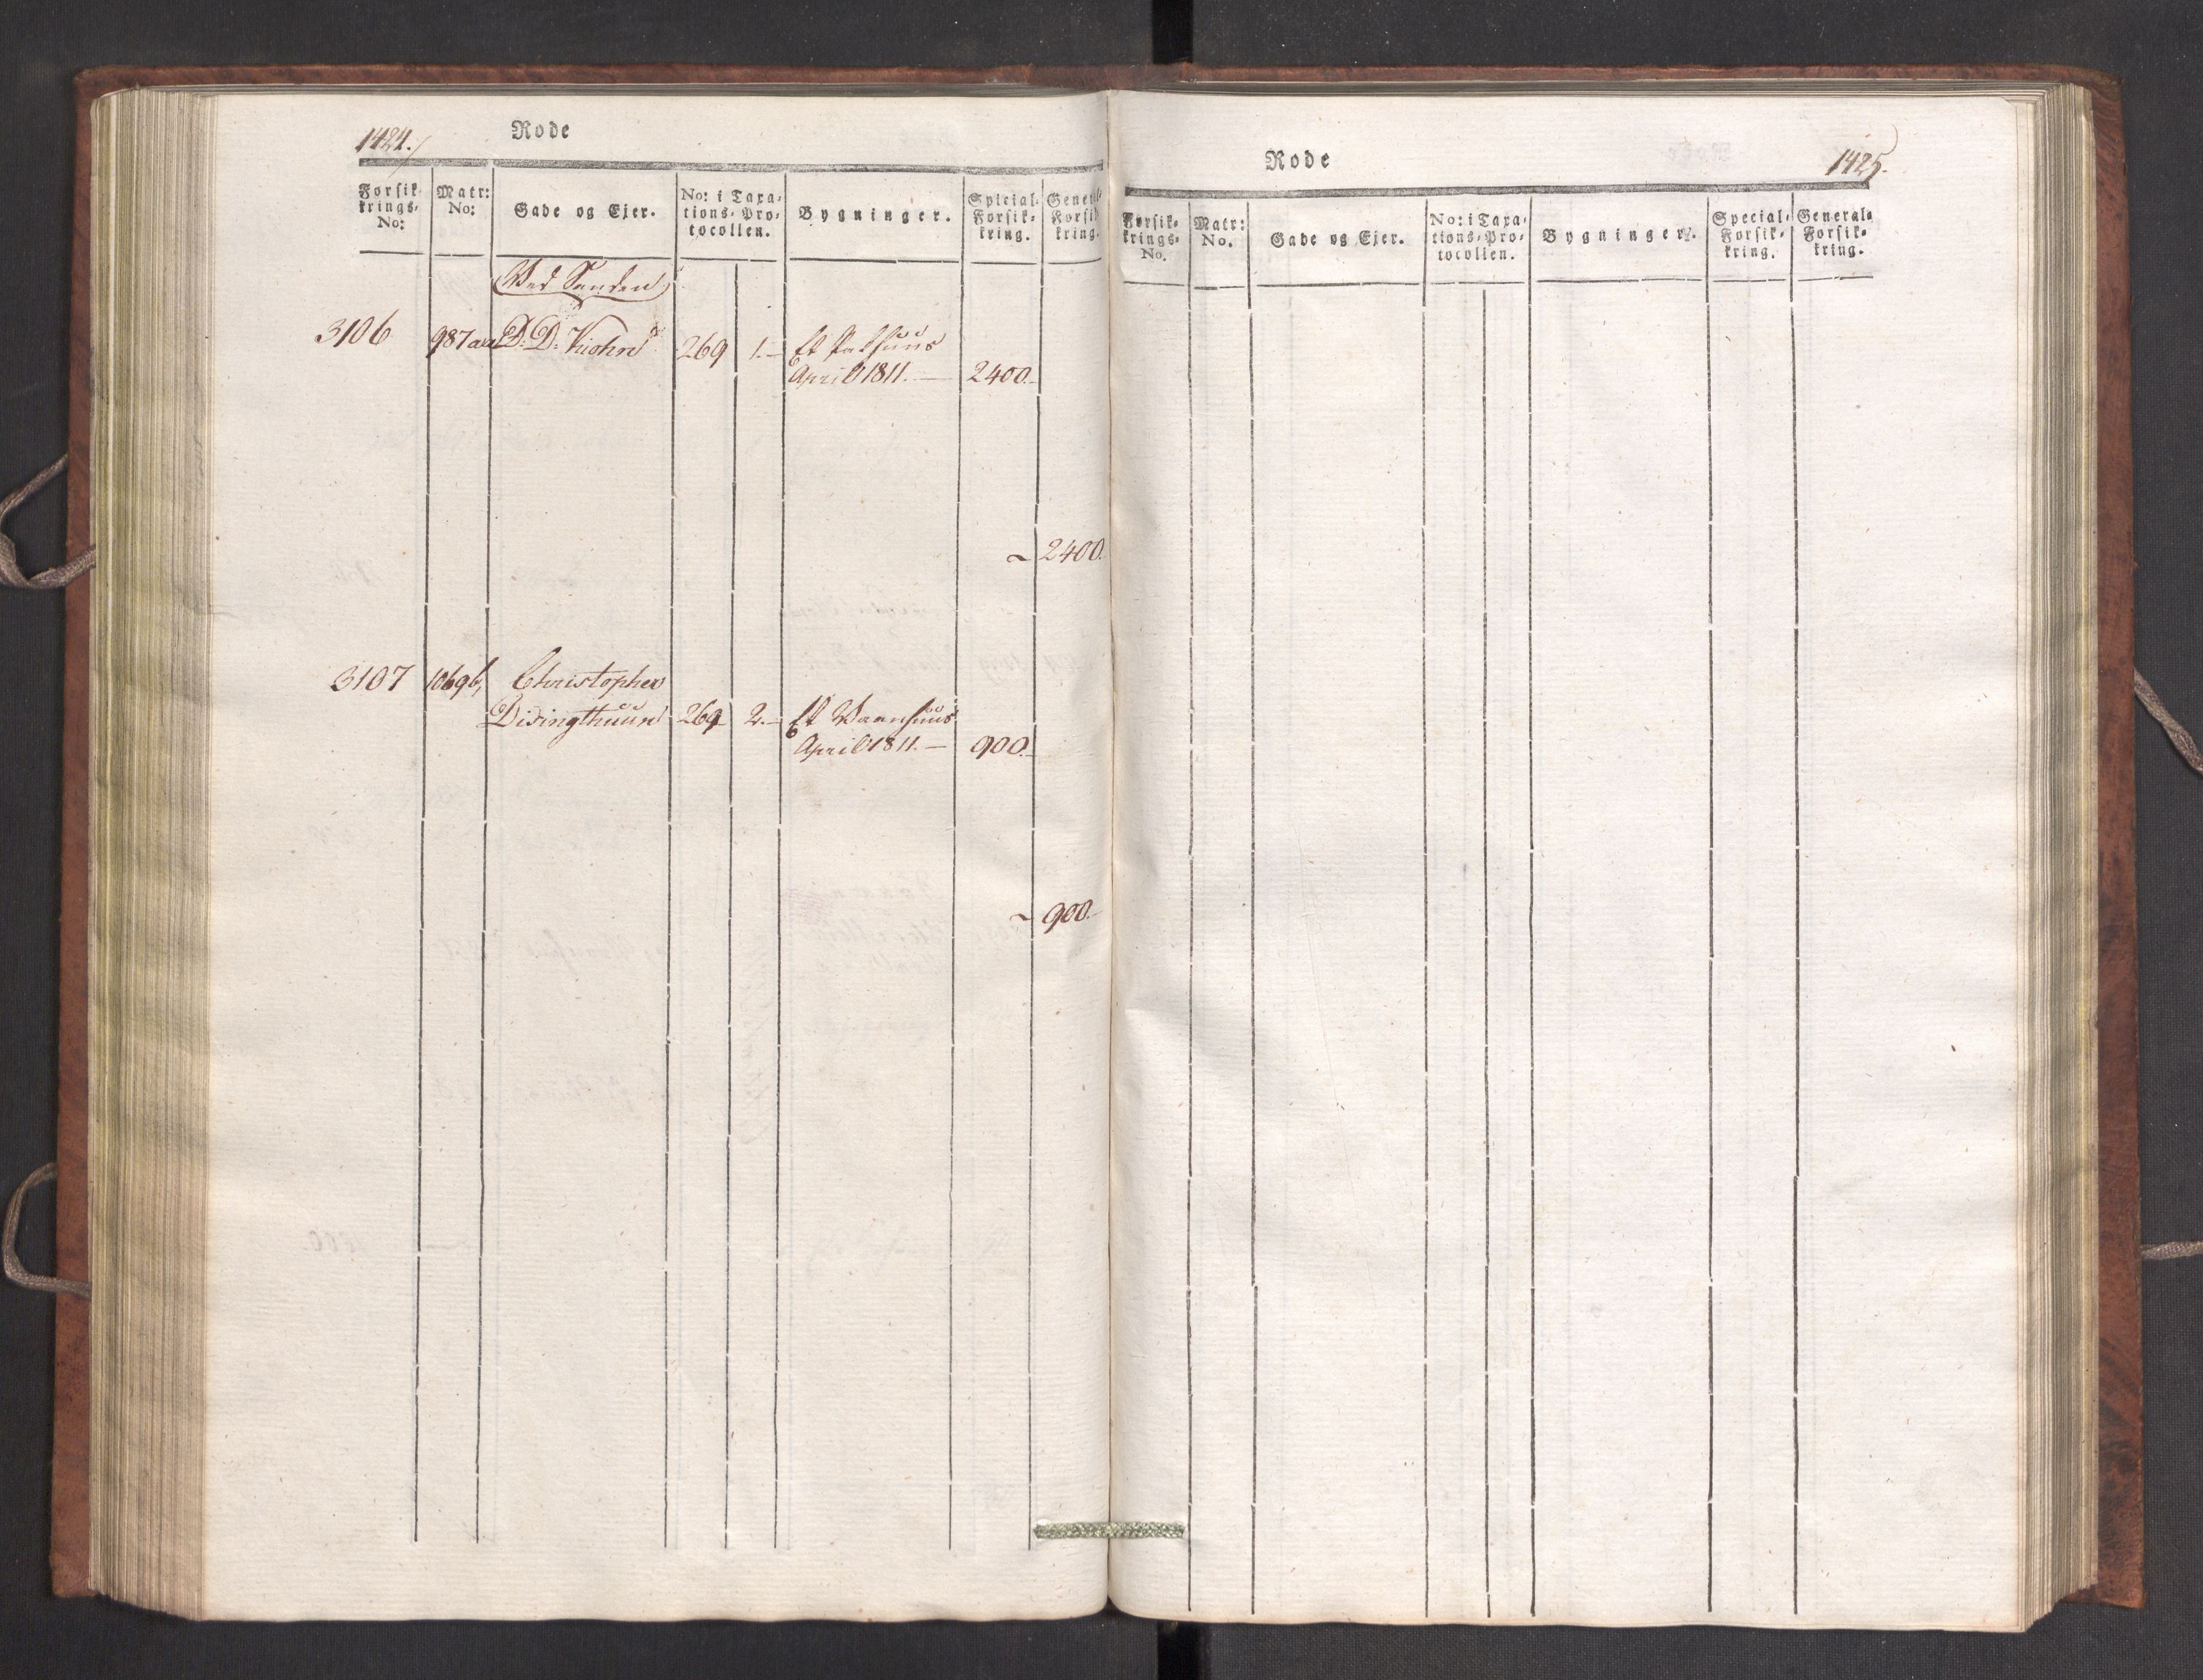 1424.
Rode
Forsik-
krings-
No:
Matr:
No:
Gade og Ejer.
No: i Taxa-
tions-Pro-
tocollen.
Bygninger.
Special-
Forsik-
kring.
General-
Forsik-
kring.
Ved Sanden
3106 987aa D. D. Kiohn 269 1.- Et Pakhuus
April 1811. — 2400.-
~ 2400.
3107 1069b, Christopher
269 2.- Et Vaanhuus
April 1811. — 900.-
~ 900.-
Rode
1425.
Forsik-
krings-
No.
Matr:
No.
Gade og Ejer.
No: i Taxa-
tions-Pro-
tocollen.
Bygninger.
Special-
Forsik-
kring.
General-
Forsik-
kring.